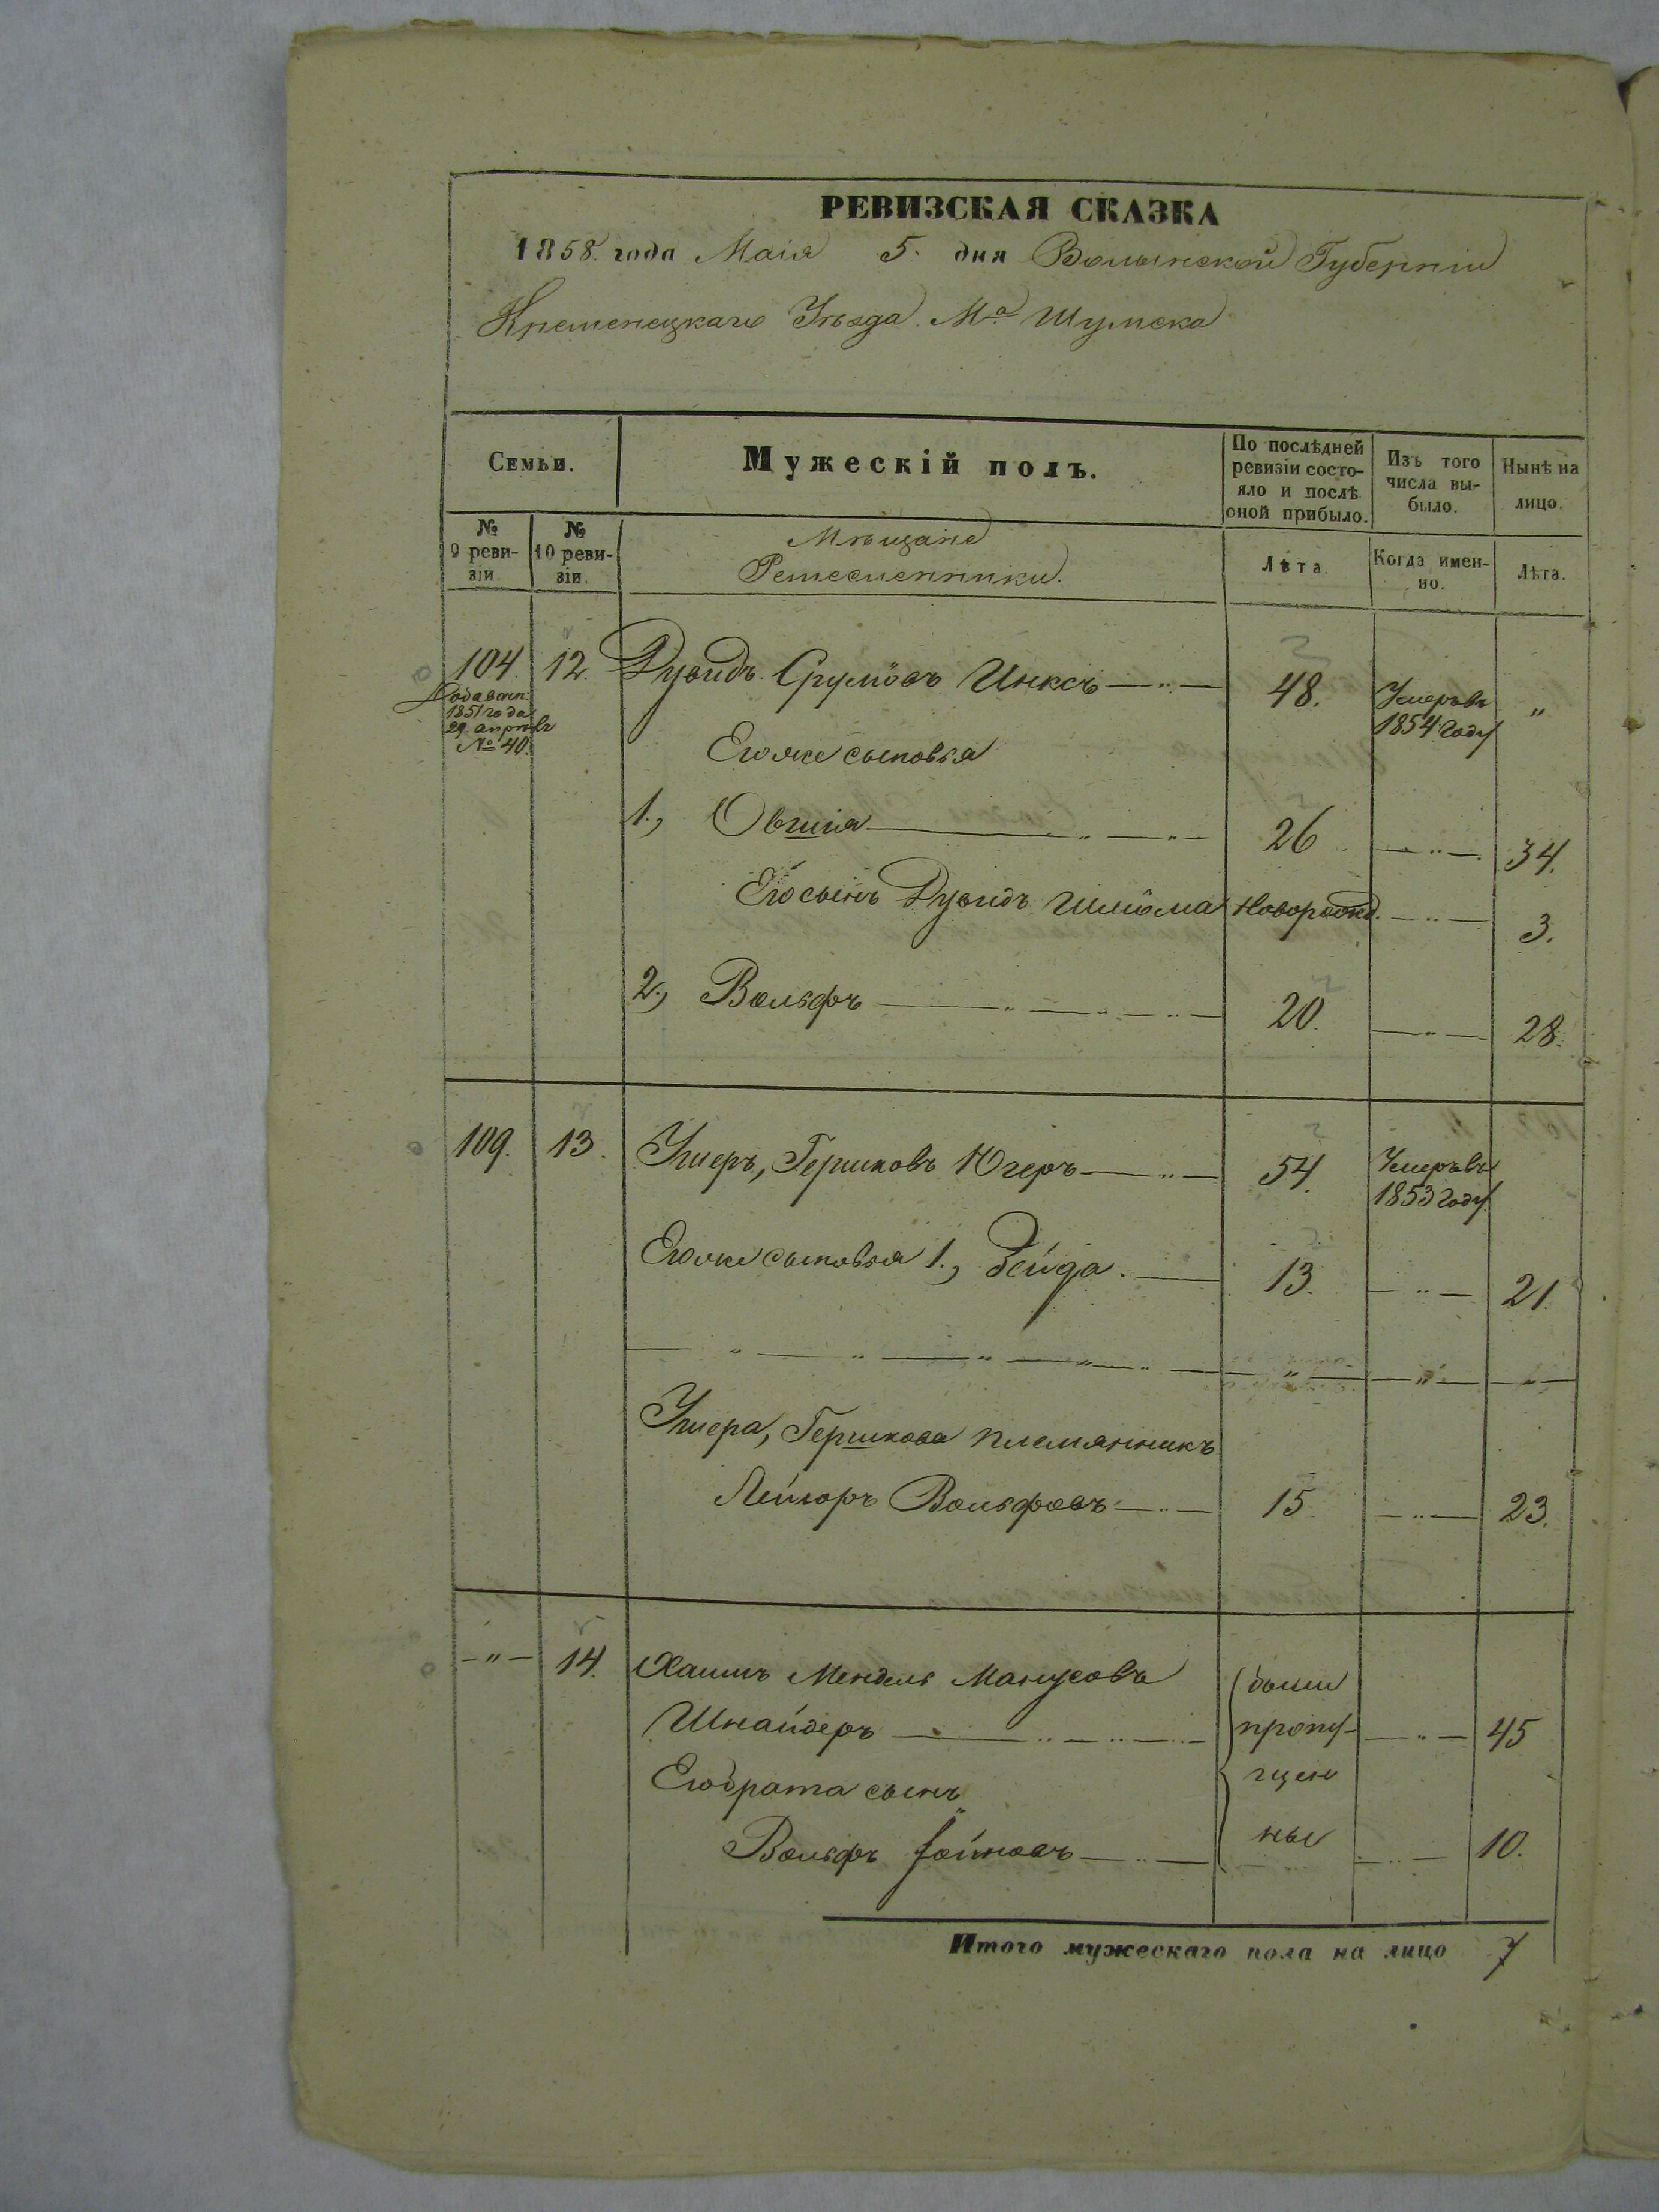 РЕВИЗСКАЯ СКАЗКА
1858. года Маія 5. дня Волынской Губерніи
Кременецкаго Уѣзда М.а Шумска
Семьи.
Мужескій полъ.
По послѣдней ревизіи состояло и послѣ оной прибыло.
Изъ того числа выбыло.
Нынѣ на лицо.
№ 9 ревизіи.
№ 10 ревизіи.
Мѣщане
Ремесленники.
Лѣта.
Когда именно.
Лѣта.
104. 12. Дувидъ Срулёвъ Инксъ 48. Умеръ въ 1854 году "
1851 года
29. апрѣля
№ 40.
Егоже сыновья
1., Овшія 26 34.
Его сынъ Дувидъ Шлiома новорожд. 3.
2., Вольфъ 20. 28.
109. 13. Ушеръ, Гершковъ Югеръ 54. Умеръ въ 1853 году
Егоже сыновья 1., Зейда. 13. 21.
Ушера, Гершкова племянникъ
Лейзоръ Вольфовъ 15. 23.
-"- 14. Хаимъ Мендель Манусовъ были
Шнайдеръ пропу- 45
Его брата сынъ щен
Вольфъ ные 10.
Итого мужескаго пола на лицо 7